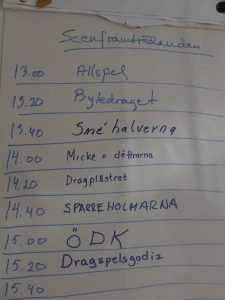 Scenframträdanden
13.00 Allspel
13.20 Byledraget
13.40 Sme'halverna
14.00 Micke o döttrarna
14.20 Dragplåstret
14.40 SPARREHOLMARNA
15.00 ÖDK
15.20 Dragspelsgodiz
15.40